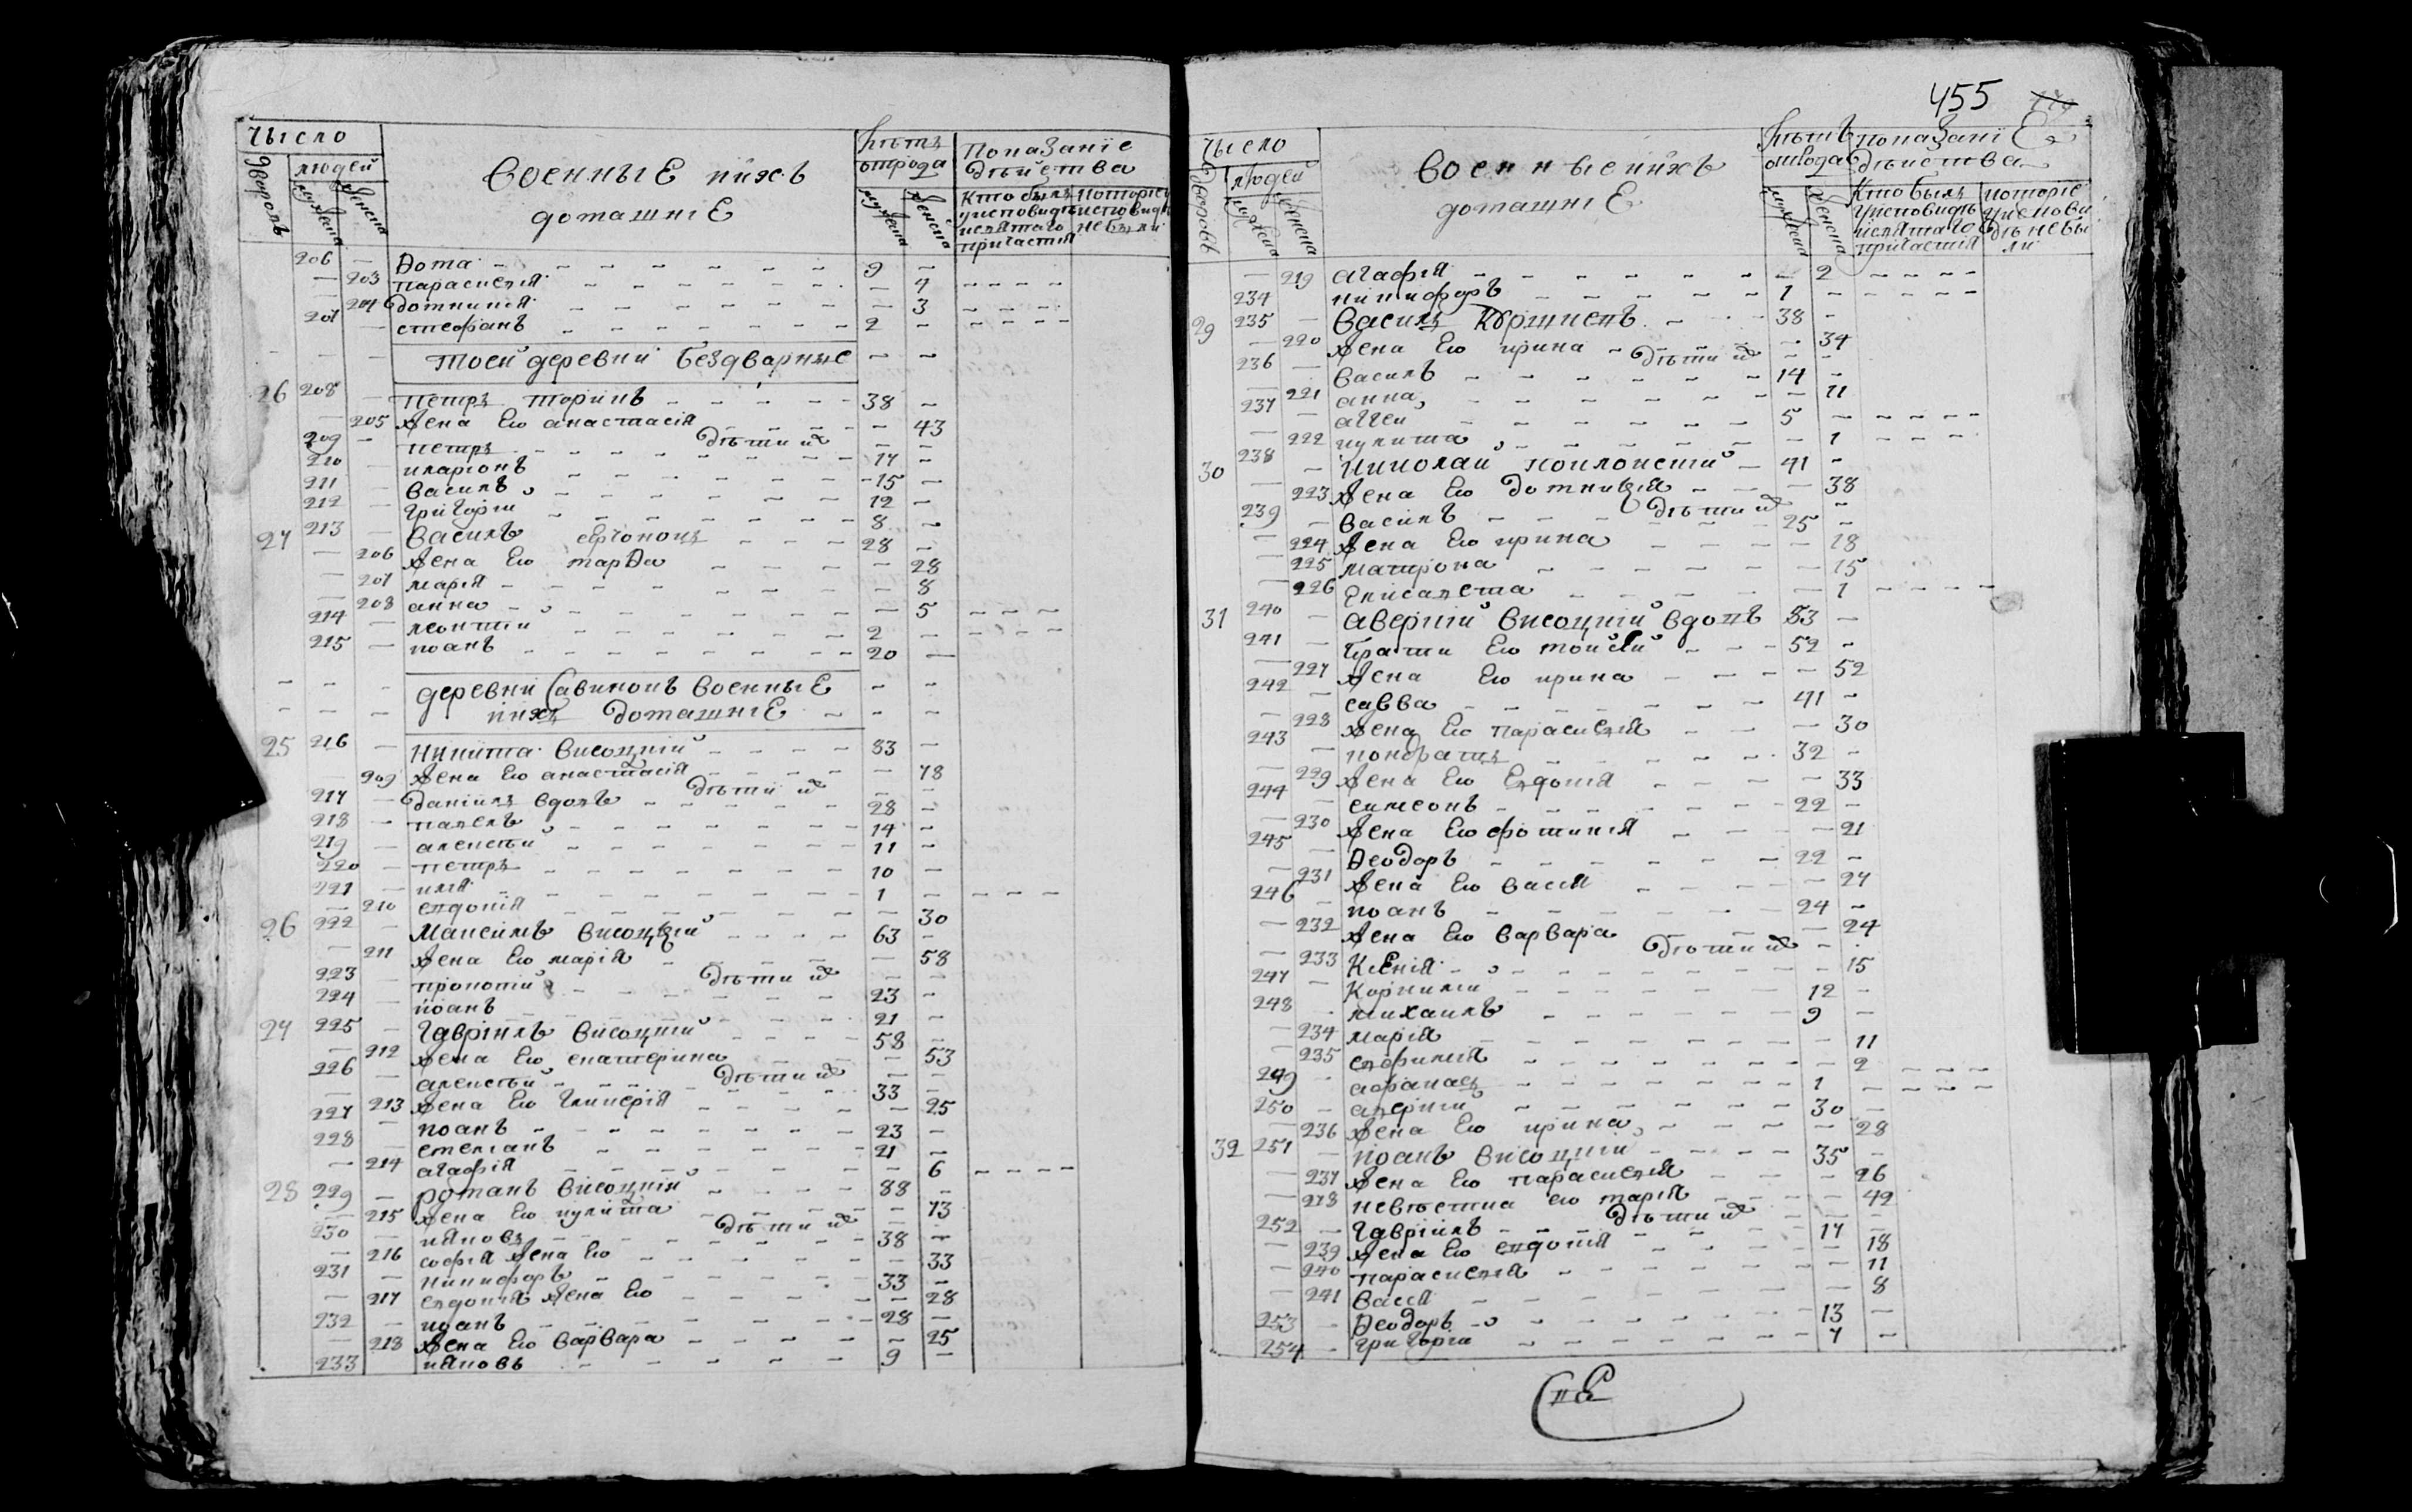 Число
дворовъ
людей
мужеска
женска
военные ихъ
домашніе
лѣтъ
отрода
мужеска
женска
Показаніе
дѣйства
Кто былъ
уисповиди
исвятаго
причастія
которіе
исповиди
небыли
206 — Ѳома 9 —
— 203 параскевія — 4
— 204 домникія — 3
207 — стефанъ 2 —
тоей деревни бездварные
26 208 — петръ торинъ 38 —
— 205 жена его анастасія — 43
дѣти ихъ
209 — петръ 17 —
210 — иларіонъ 15 —
211 — василъ 12 —
212 — григорій 8 —
27 213 — василъ 28 —
— 206 жена его марѳа — 28
— 207 марія — 8
— 208 анна — 5
214 — леонтій 2 —
215 — иоанъ 20 —
деревни Савинокъ военные
ихъ домашніе
25 216 — никита висоцкій 83 —
— 209 жена его анастасія — 78
дѣти ихъ
217 — даніилъ вдовъ 28 —
218 — павелъ 14 —
219 — алексѣй 11 —
220 — петръ 10 —
221 — илія 1 —
— 210 евдокія — 30
26 222 — Максимъ висоцкій 63 —
— 211 жена его марія — 58
дѣти ихъ
223 — прокопій 23 —
224 — иоанъ 21 —
27 225 — гавріилъ висоцкій 58 —
— 212 жена его екатерина — 53
дѣти ихъ
226 — алексѣй 33 —
— 213 жена его гликерія — 25
227 — иоанъ 23 —
228 — степанъ 21 —
— 214 агафія — 6
28 229 — романъ висоцкій 88 —
— 215 жена его иулита — 73
дѣти ихъ
230 — иаковъ 38 —
— 216 софія жена его — 33
231 — никифоръ 33 —
— 217 евдокія жена его — 28
232 — иоанъ 28 —
— 218 жена его варвара — 25
233 иаковъ 9 —
455
Число
дворовъ
людей
мужеска
женска
военные ихъ
домашніе
лѣтъ
отрода
мужеска
женска
показаніе
дѣйства
Кто былъ
уисповидъ
исвятаго
причастія
которіе
уиспови
дѣ небы
ли
— 219 агафія — 2
234 никифоръ 1 —
29 235 — василъ 38 —
— 220 жена его ирина — 34
дѣти ихъ
236 — василъ 14 —
— 221 анна — 11
237 — аггей 5 —
— 222 иулита — 1
30 238 — николай поплонский 41 —
— 223 жена его домникія — 38
дѣти ихъ
239 — василъ 25 —
— 224 жена его ирина — 18
— 225 матрона — 15
— 226 Елисавета — 1
31 240 — аверкій висоцкій вдовъ 83 —
241 — брати его моисей 52 —
— 227 жена его ирина — 52
242 — савва 41 —
— 228 жена его параскевія — 30
243 — кондратъ 32 —
— 229 жена его Евдокія — 33
244 — симеонъ 22 —
— 230 жена его фотинія — 21
245 — Ѳеодоръ 22 —
— 231 жена его васся — 27
246 — иоанъ 24 —
— 232 жена его варвара — 24
дѣти ихъ
— 233 Ксенія — 15
247 — Корнилій 12 —
248 — михаилъ 9 —
— 234 марія — 11
— 235 евфимія — 2
249 — афанасъ 1 —
250 — аверкій 30 —
— 236 жена его ирина — 28
32 251 — иоанъ висоцкій 35 —
— 237 жена его параскевія — 26
— 238 невѣстка его марія — 42
дѣти ихъ
252 — гавріилъ 17 —
— 239 жена его евдокія — 18
— 240 параскевія — 11
— 241 васся — 8
253 — Ѳеодоръ 13 —
254 — григорій 7 —